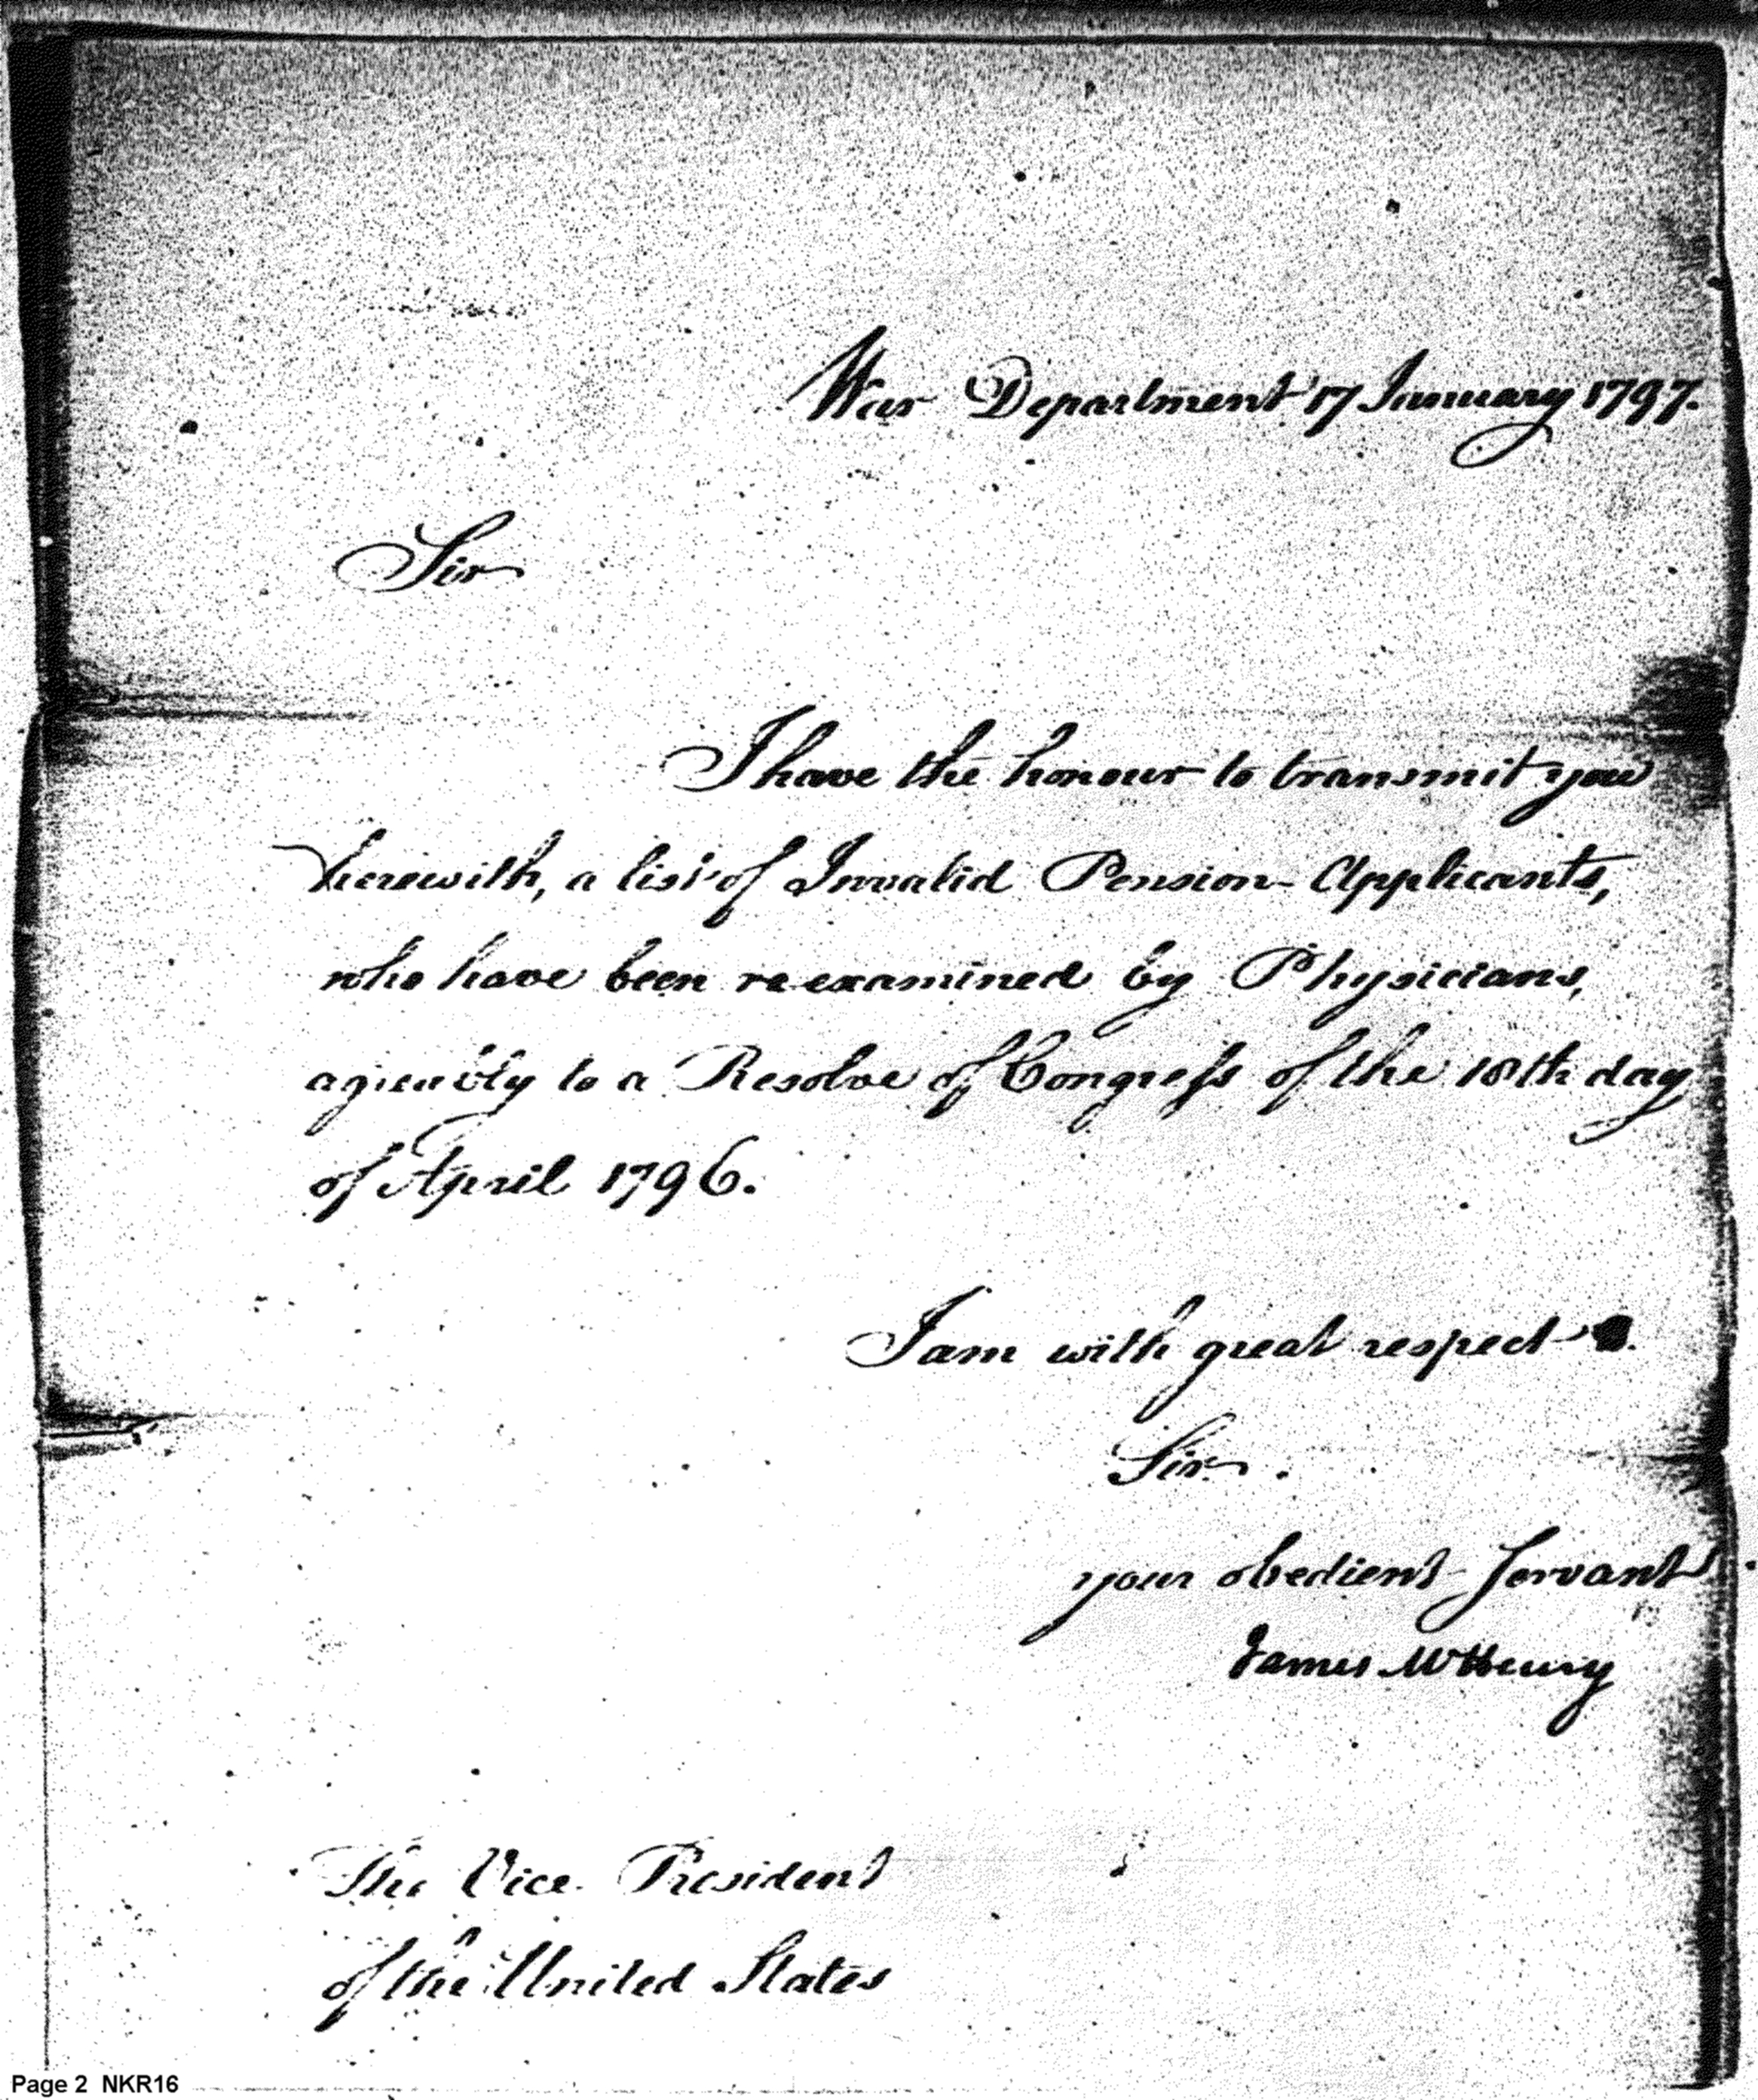 War Department 17 January 1797.
Sir
I have the honour to transmit you
herewith, a list of Invalid Pension Applicants,
who have been re-examined by Physicians,
agreeably to a Resolve of Congress of the 18th day
of April 1796.
I am with great respect
Sir
your obedient Servant
James McHenry
The Vice President
of the United States
Page 2 NKR16